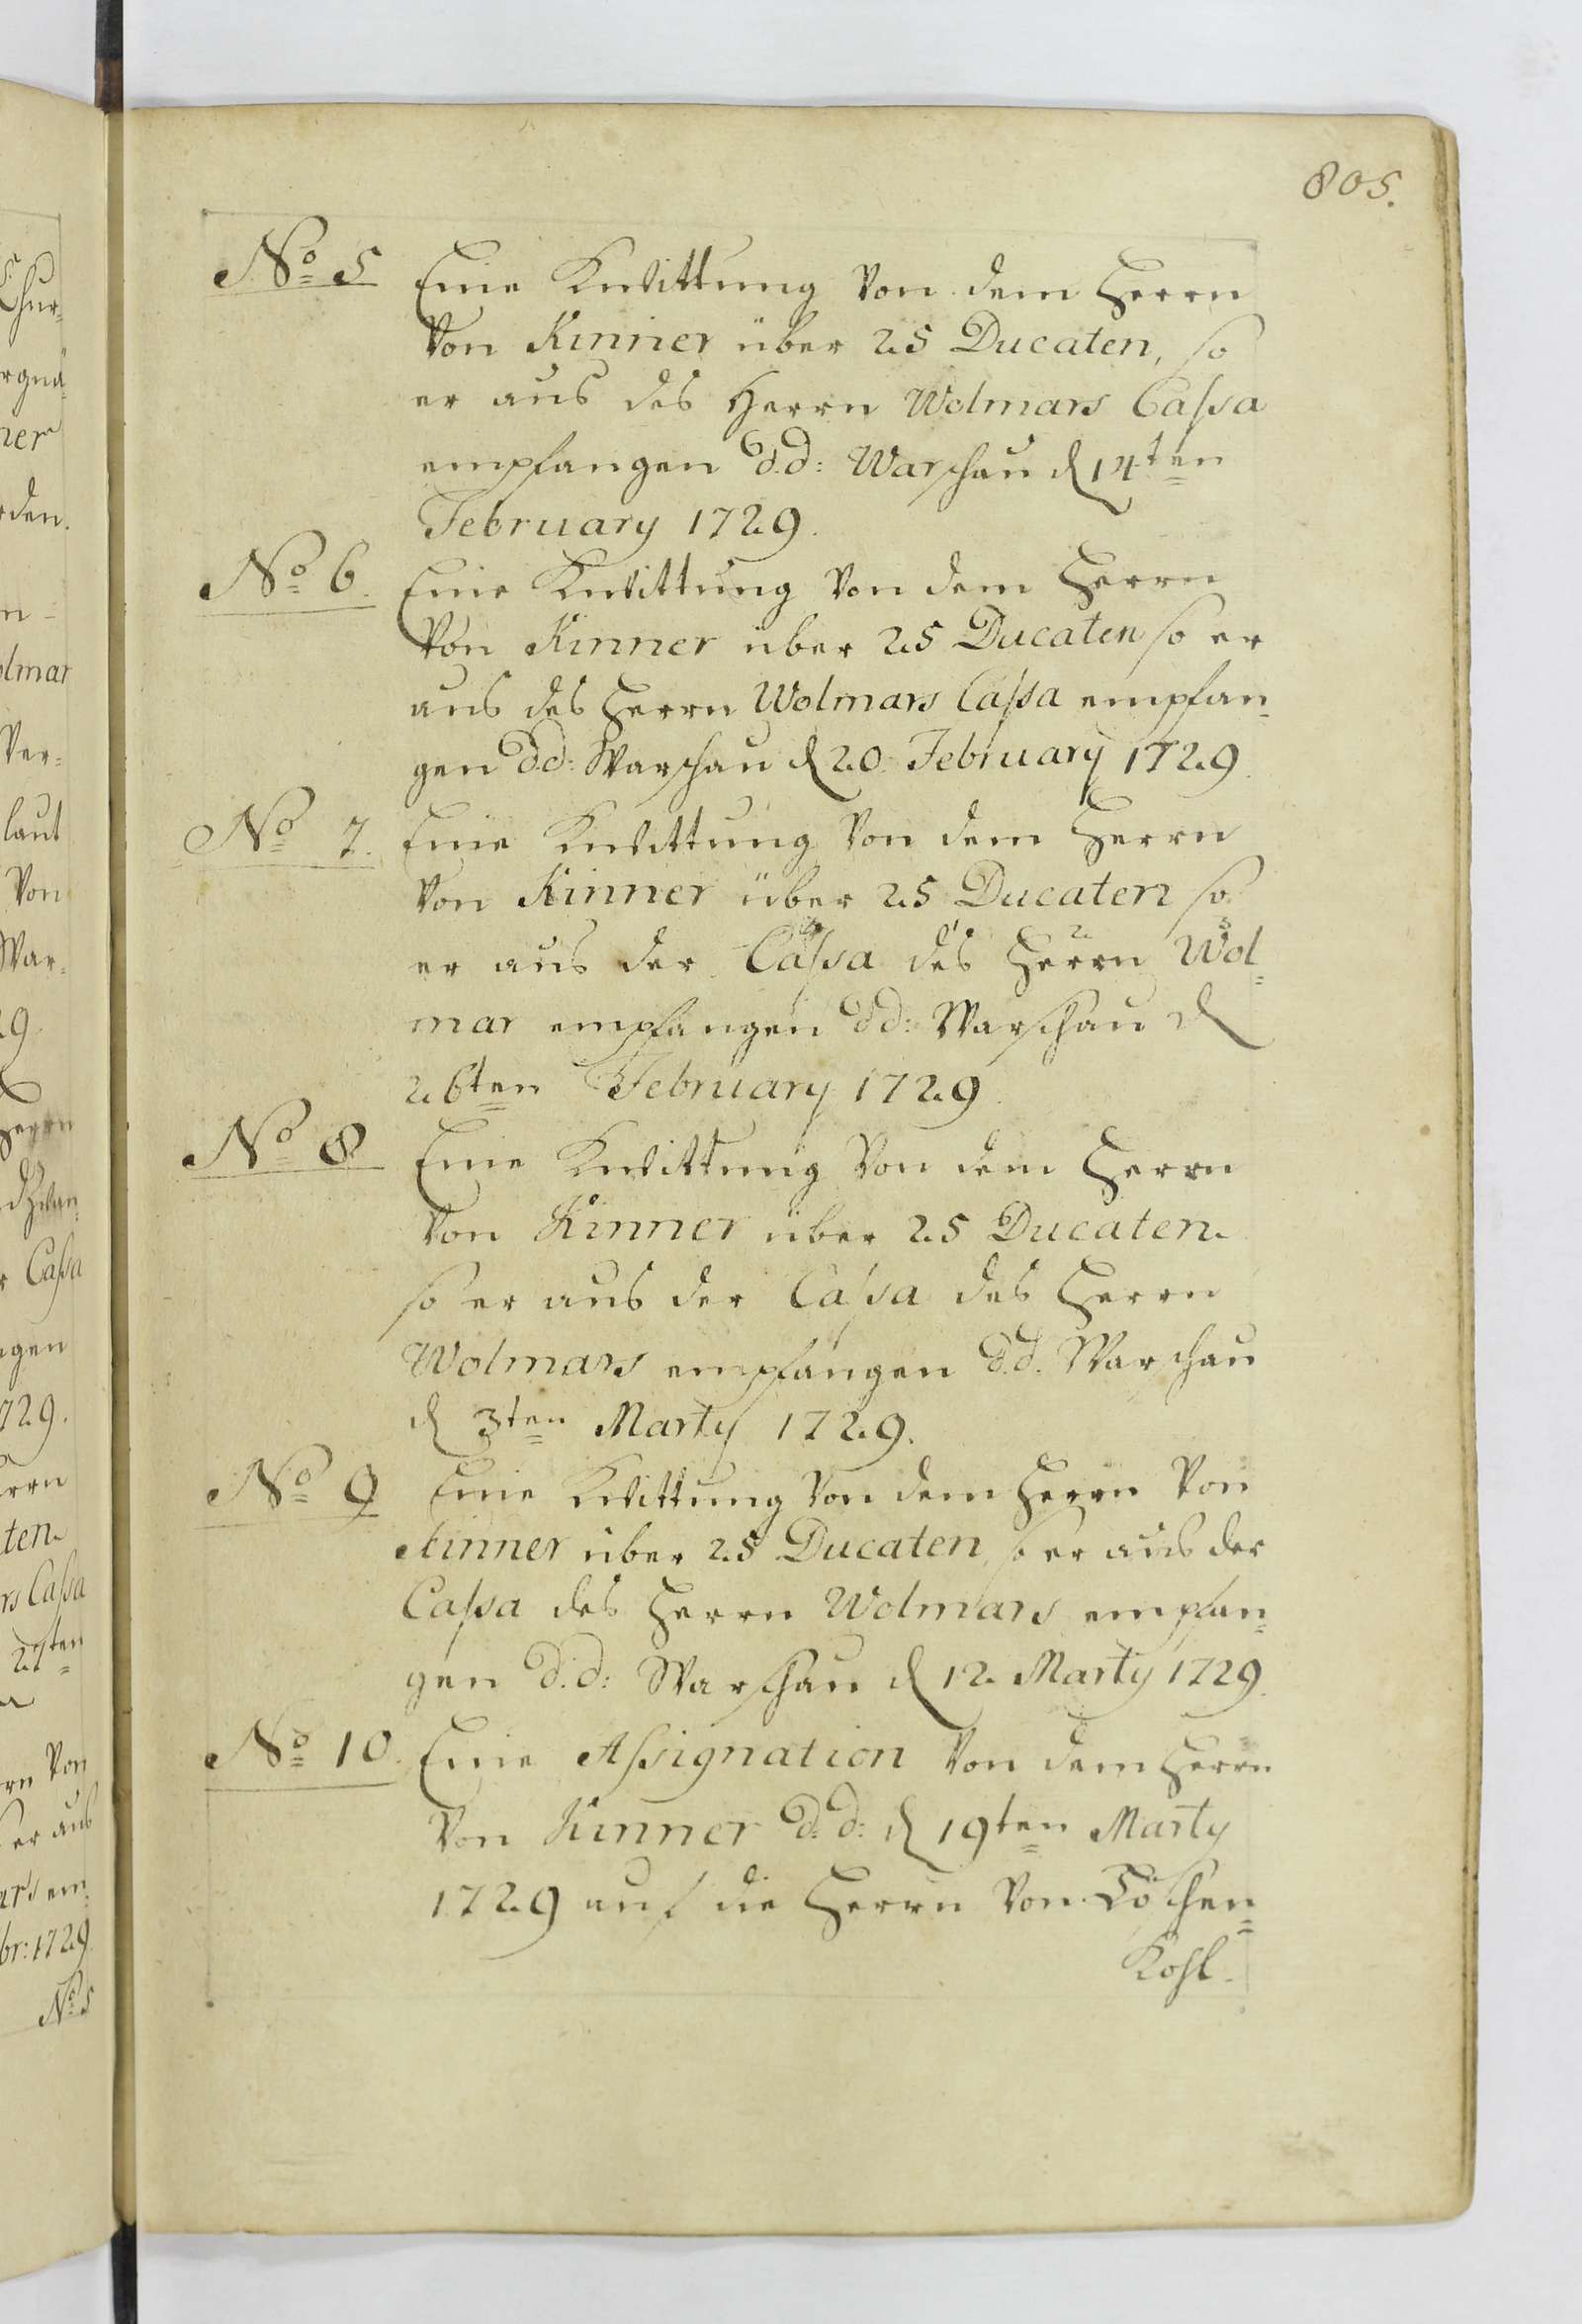 805.
No 5 Eine Kwittung von dem Herrn
von Kinner über 25 Ducaten, so
er aus des Herrn Wolmars Cassa
empfangen d.d: Warschau d 14ten
February 1729.
No 6. Eine Kwittung von dem Herrn
von Kinner über 25 Ducaten so er
aus des Herrn Wolmars Cassa empfan=
gen d.d: Warschau d 20. February 1729.
No 7. Eine Kwittung von dem Herrn
von Kinner über 25 Ducaten so
er aus der Cassa des Herrn Wol=
mar empfangen d.d: Warschau d
26ten February 1729.
No 8. Eine Kwittung von dem Herrn
von Kinner über 25 Ducaten.
so er aus der Cassa des Herrn
Wolmars empfangen d.d. Warschau
d 3ten Marty 1729.
No 9 Eine Kwittung von dem Herrn von
Kinner über 25 Ducaten, so er aus der
Cassa des Herrn Wolmars empfan=
gen d.d: Warschau d 12. Marty 1729.
No 10. Eine Assignation von dem Herrn
von Kinner d.d: d 19ten Marty
1729 auf die Herrn von Löschen=
Kohl.